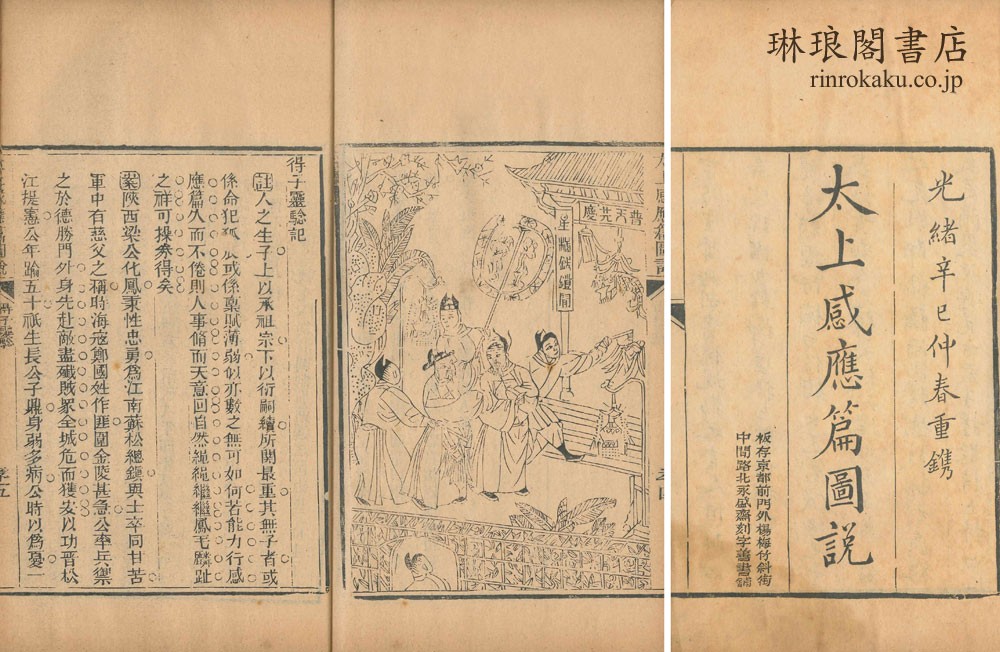 琳琅閣書店
rinrokaku.co.jp
光緒辛巳仲春重鐫
太上感應篇圖說
板存京都前門外楊梅竹斜街
中間路北永盛齋刻字善書舖
普天共慶
得子靈驗記
註人之生子上以承祖宗下以衍嗣續所關最重其無子者或
係命犯狐或係稟賦薄弱似亦數之無可如何若能力行感
應篇久而不倦則人事脩而天意回自然繩繩繼繼鳳毛麟趾
之祥可操券得矣
案陝西梁公化鳳秉性忠勇爲江南蘇松總鎮與士卒同甘苦
軍中有慈父之稱時海寇鄭國姓作匪圍金陵甚急公率兵禦
之於德勝門外身先赴敵盡殲賊眾全城危而獲安以功晉松
江提憲公年踰五十祇生長公子身弱多病公時以爲憂一
孝五